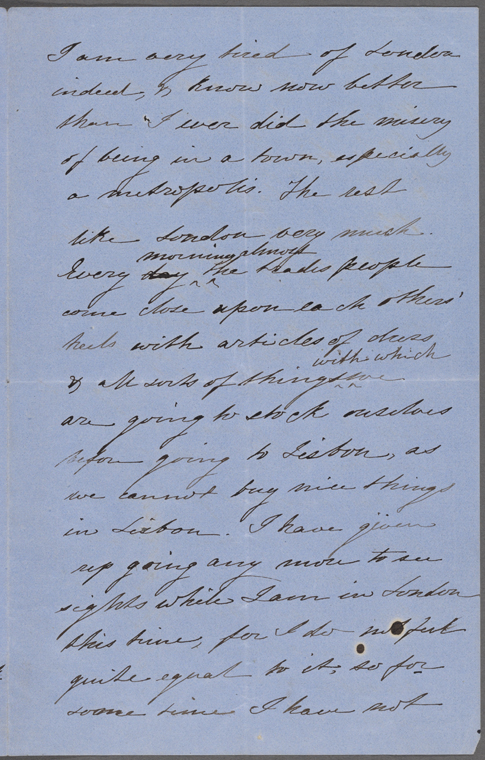 I am very tired of London
indeed, & know now better
than I ever did the misery
of being in a town, especially
a metropolis. The rest
like London very much.
morning almost
Every day the trades people
come close upon each others'
heels with articles of dress
with which
& all sorts of things we
are going to stock ourselves
before going to Lisbon, as
we cannot buy nice things
in Lisbon. I have given
up going any more to see
sights while I am in London
this time, for I do not feel
quite equal to it, so for
some time I have not